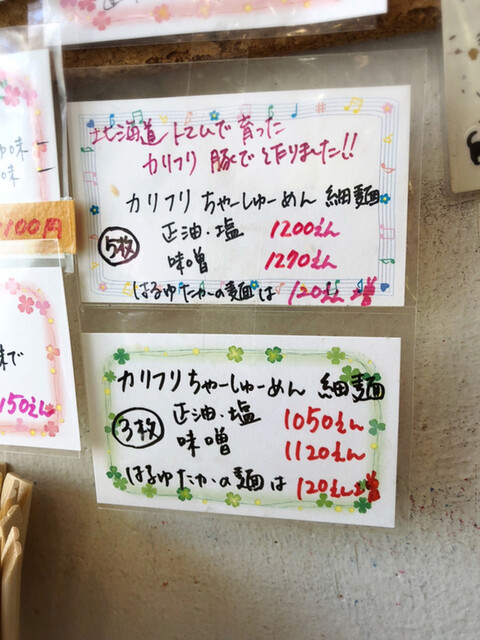 味
味
100円
味で
150えん
北海道トマムで育った
カリフリ 豚で作りました!!
カリフリ ちゃーしゅーめん 細麺
5枚
正油・塩 1200えん
味噌 1270えん
はるゆたかの麺は 120えん増
カリフリ ちゃーしゅーめん 細麺
3枚
正油・塩 1050えん
味噌 1120えん
はるゆたかの麺は 120えん増